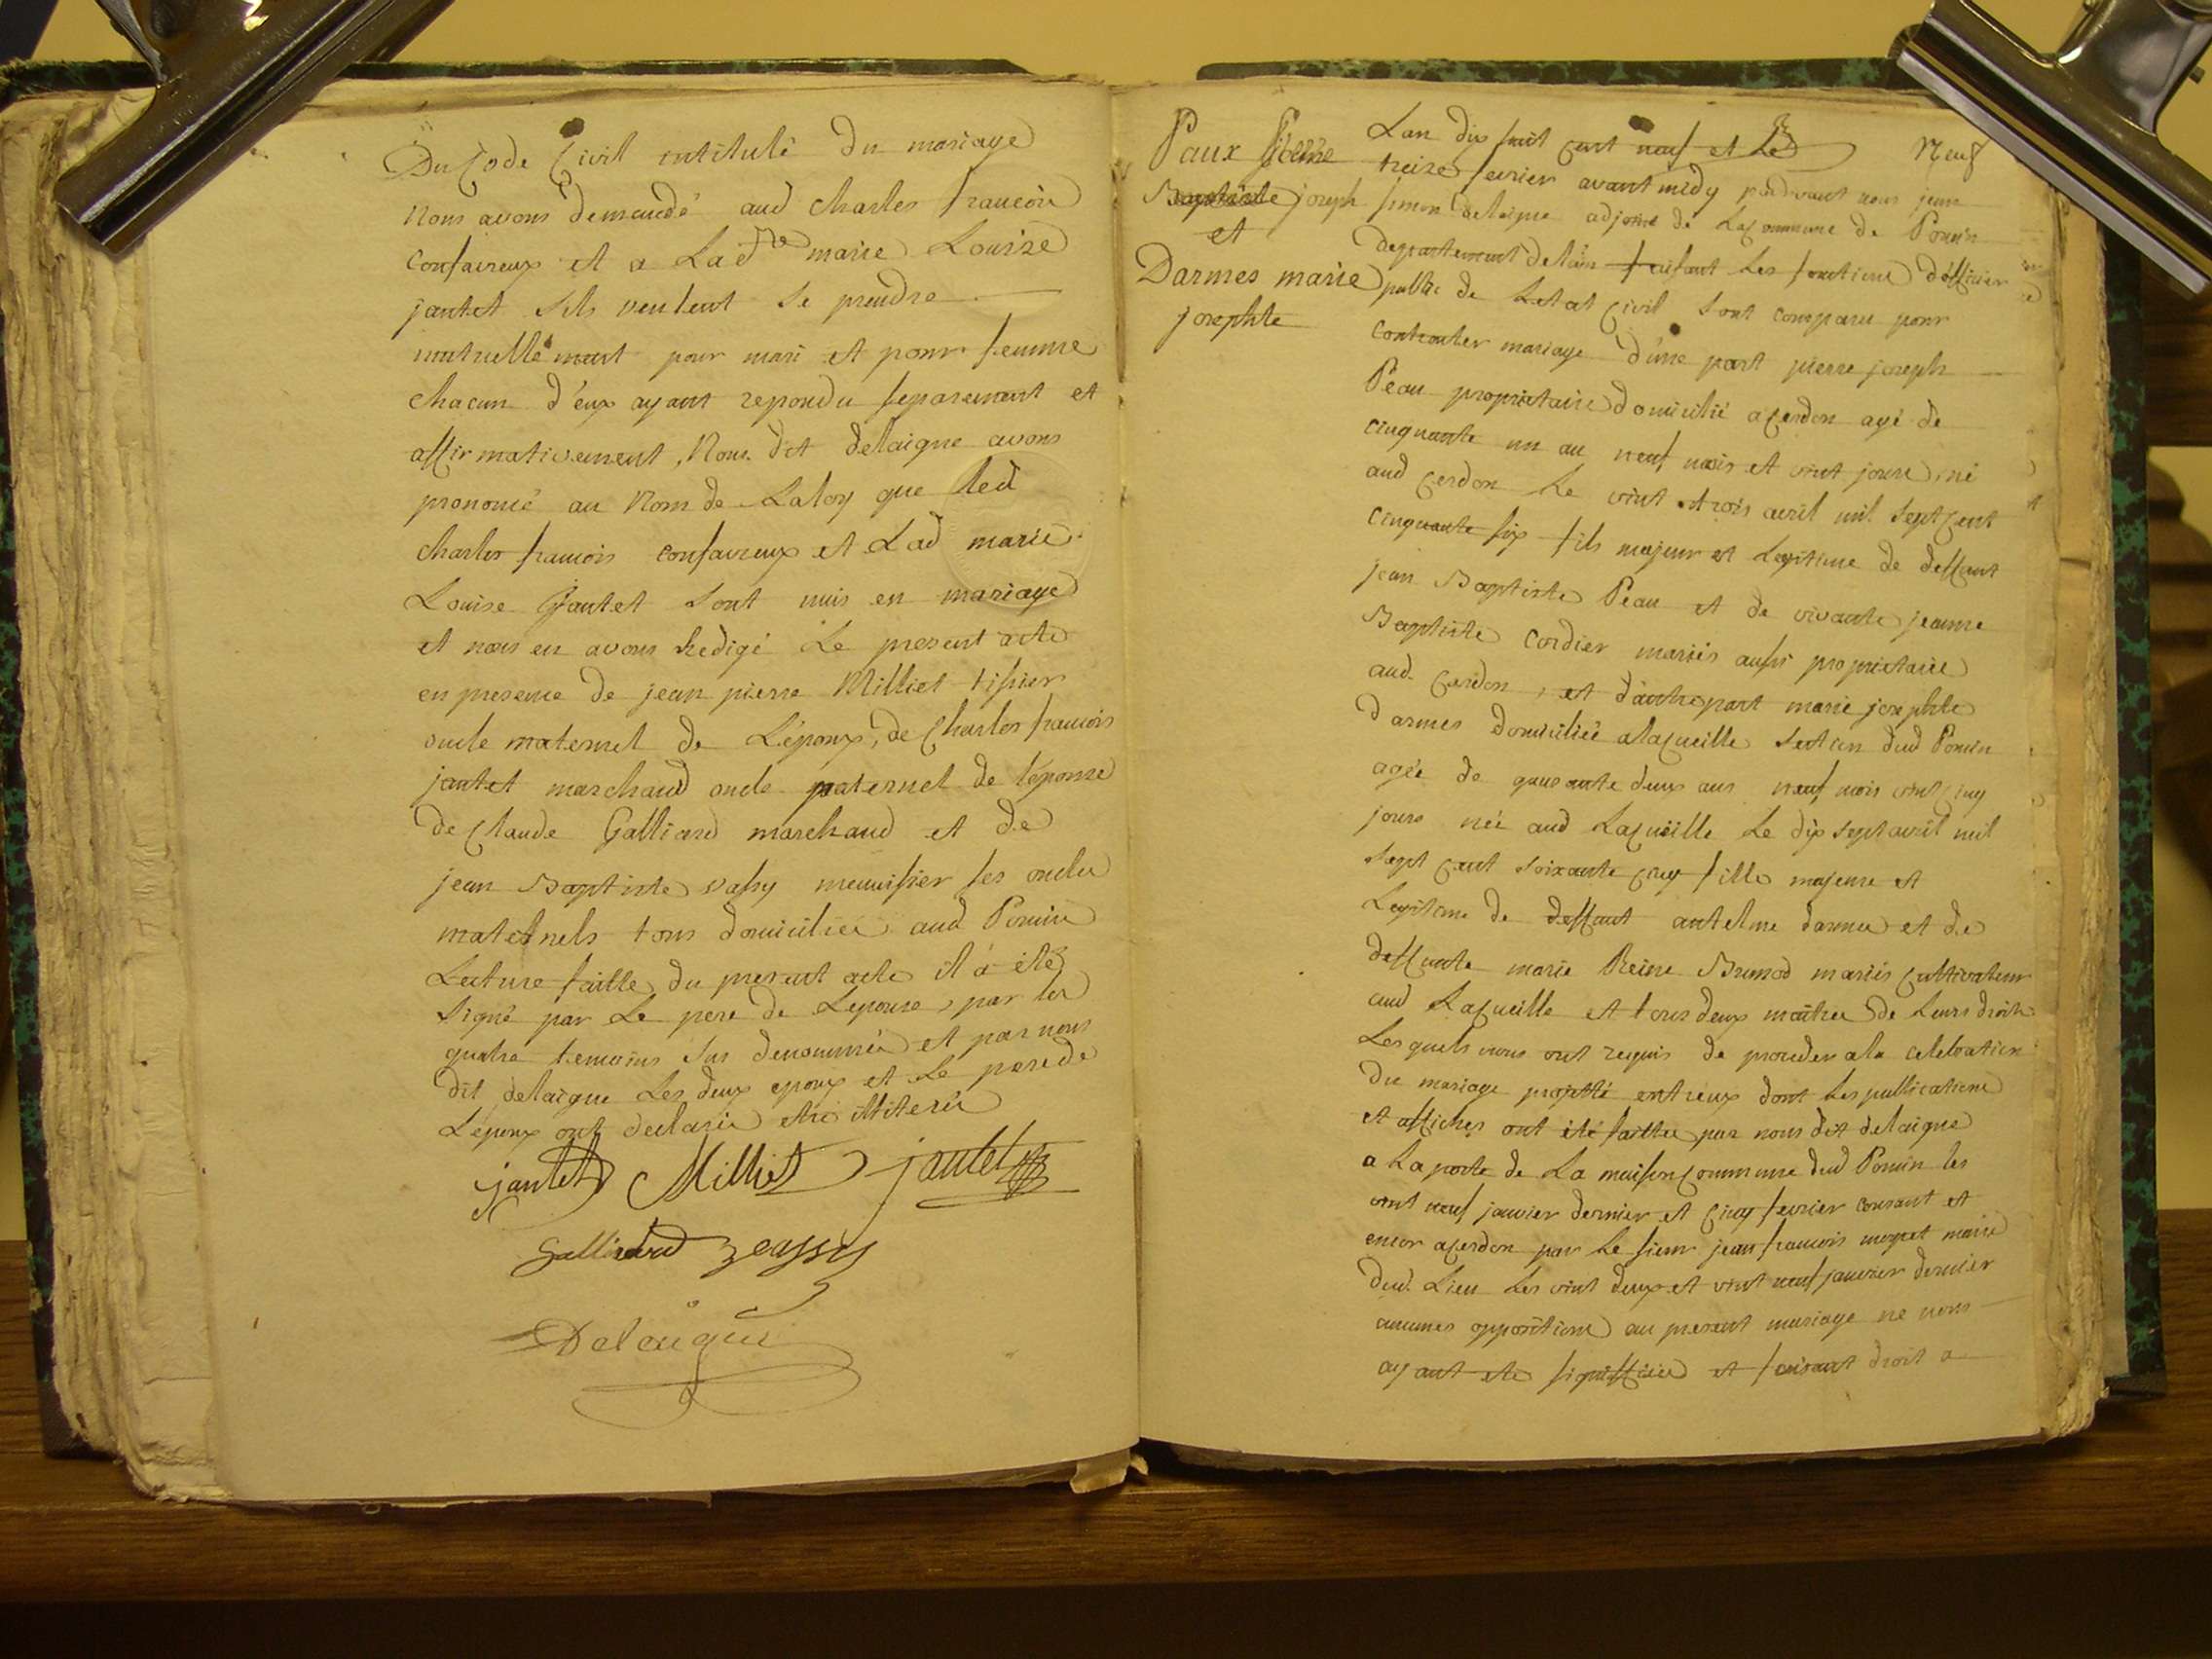 Du Code Civil intitulé Du mariage
Nous avons demandé aud charles francois
Confaireux et a Lad.te marie Louise
jantet sils veulent se prendre
mutuellement pour mari et pour femme
chacun d'eux ayant repondu separement et
affirmativement, Nous dit delaigue avons
prononcé au Nom de Laloy que led
charles francois confaireux et Lad marie
Louise jantet sont unis en mariage
et nous en avons Redigé Le present acte
en presence de jean pierre Milliet tissier
oncle maternel de L'époux, de Charles francois
jantet marchand oncle paternel de l'épouse
de Claude Galliard marchand et de
jean Baptiste vassy menuisier ses oncles
maternels tous domiciliés aud Poncin
Lecture faitte du present acte il a été
signé par Le pere de Lepouse, par les
quatre temoins sus denommés et par nous
dit delaigue Les deux epoux et Le pere de
L'époux ont declaré etre illiterés
jantet Milliet jantet
Galliard vassy
Delaigue
Neuf
Paux Pierre
Baptiste joseph
et
Darmes marie
josephte
Lan dix huit cent neuf et Le
treize fevrier avant midy pardevant nous jean
simon delaigue adjoint de La Commune de Poncin
departement de lain faisant les fonctions d'officier
public de Letat Civil sont comparu pour
Contracter mariage d'une part pierre joseph
Peau proprietaire domicilié a Cerdon agé de
cinquante un an neuf mois et vint jours, né
aud Cerdon Le vint trois avril mil sept Cent
cinquante six fils majeur et Legitime de deffunt
jean Baptiste Peau et de vivante jeanne
Baptiste Cordier mariés aussi proprietaires
aud. Cerdon, et d'autre part marie josephte
darmes domiciliée a la Cueille section dud Poncin
agée de quarante deux ans neuf mois vint cinq
jours née aud La Cueille Le dix sept avril mil
sept cent soixante cinq fille majeure et
Legitime de deffunt antelme darmes et de
deffunte marie Reine Brunod mariés Cultivateurs
aud La Cueille et tous deux maitres de Leurs droits
Les quels nous ont requis de proceder a la celebration
du mariage projetté entr'eux dont les publications
et affiches ont été faittes par nous dit delaigue
a La porte de La maison Commune dud Poncin les
vint neuf janvier dernier et Cinq fevrier courant et
encor a Cerdon par le sieur jean francois moyret maire
dud. Lieu Les vint deux et vint neuf janvier dernier
aucunes oppositions au present mariage ne nous
ayant ete signiffiées et faisant droit a